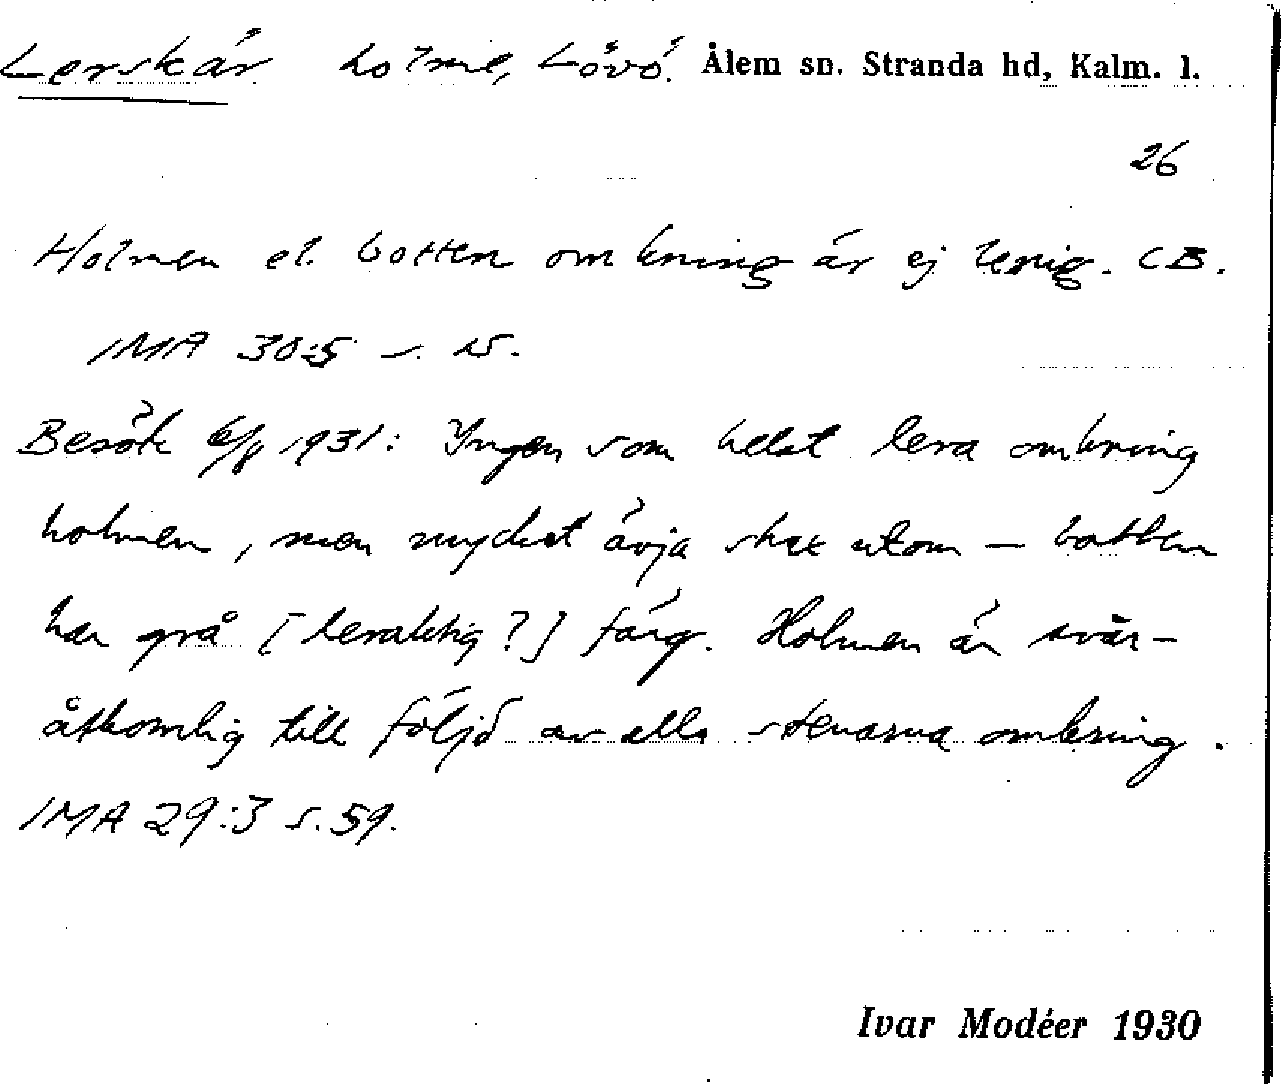 Lerskär holme, Lövö. Ålem sn. Stranda hd, Kalm. l.
26
Holmen el. botten omkring är ej lerig. CB.
IMA 30:5 s. 15.
Besök 6/8 1931: Ingen som helst lera omkring
holmen, men mycket ävja strax utom — botten
har grå [leraktig?] färg. Holmen är svår-
åtkomlig till följd av alla stenarna omkring.
IMA 29:3 s. 59.
Ivar Modéer 1930